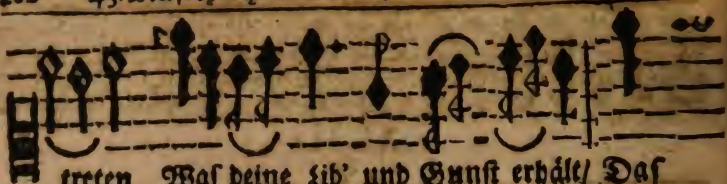 treten Waſ deine Lib' und Gunſt erhält/ Daſ